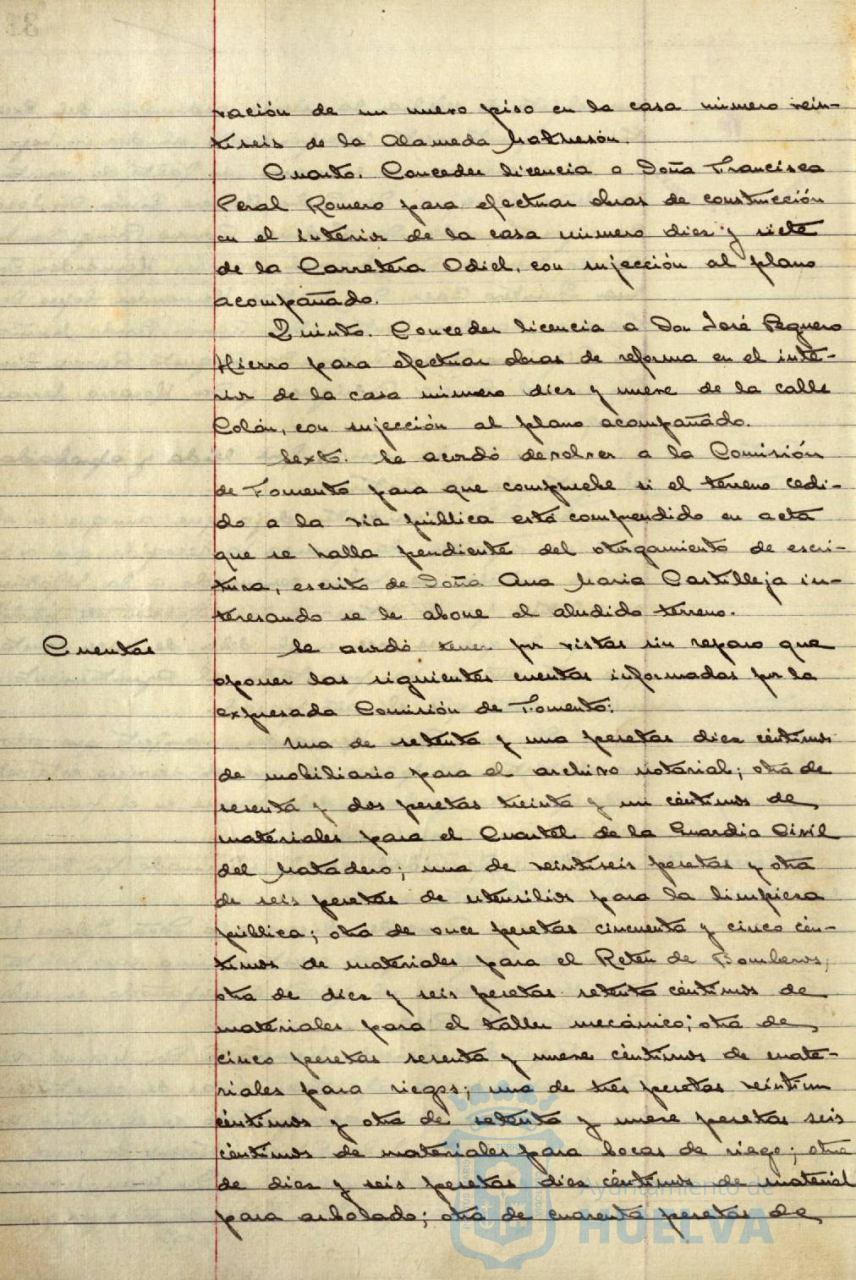 ración de un nuevo piso en la casa número vein-
tiseis de la Alameda Matheson.
Cuarto. Conceder licencia a Doña Francisca
Peral Romero para efectuar obras de construcción
en el interior de la casa número diez y siete
de la Carretera Odiel, con sujección al plano
acompañado.
Quinto. Conceder licencia a Don José Peguero
Hierro para efectuar obras de reforma en el inte-
rior de la casa número diez y nueve de la calle
Colón, con sujección al plano acompañado.
Sexto. Se acordó devolver a la Comisión
de Fomento para que compruebe si el terreno cedi-
do a la via pública está comprendido en acta
que se halla pendiente del otorgamiento de escri-
tura, escrito de Doña Ana Maria Castilleja in-
teresando se le abone el aludido terreno.
Cuentas
Se acordó tener por vistas sin reparo que
oponer las siguientes cuentas informadas por la
expresada Comisión de Fomento:
Una de setenta y una pesetas diez céntimos
de mobiliario para el archivo notarial; otra de
sesenta y dos pesetas treinta y un céntimos de
materiales para el Cuartel de la Guardia Civil
del Matadero; una de veintiseis pesetas y otra
de seis pesetas de utensilios para la limpieza
pública; otra de once pesetas cincuenta y cinco cén-
timos de materiales para el Retén de Bomberos;
otra de diez y seis pesetas setenta céntimos de
materiales para el taller mecánico; otra de
cinco pesetas sesenta y nueve céntimos de mate-
riales para riegos; una de tres pesetas veintiun
céntimos y otra de setenta y nueve pesetas seis
céntimos de materiales para bocas de riego; otra
de diez y seis pesetas diez céntimos de material
para arbolado; otra de cuarenta pesetas de
Ayuntamiento de
HUELVA